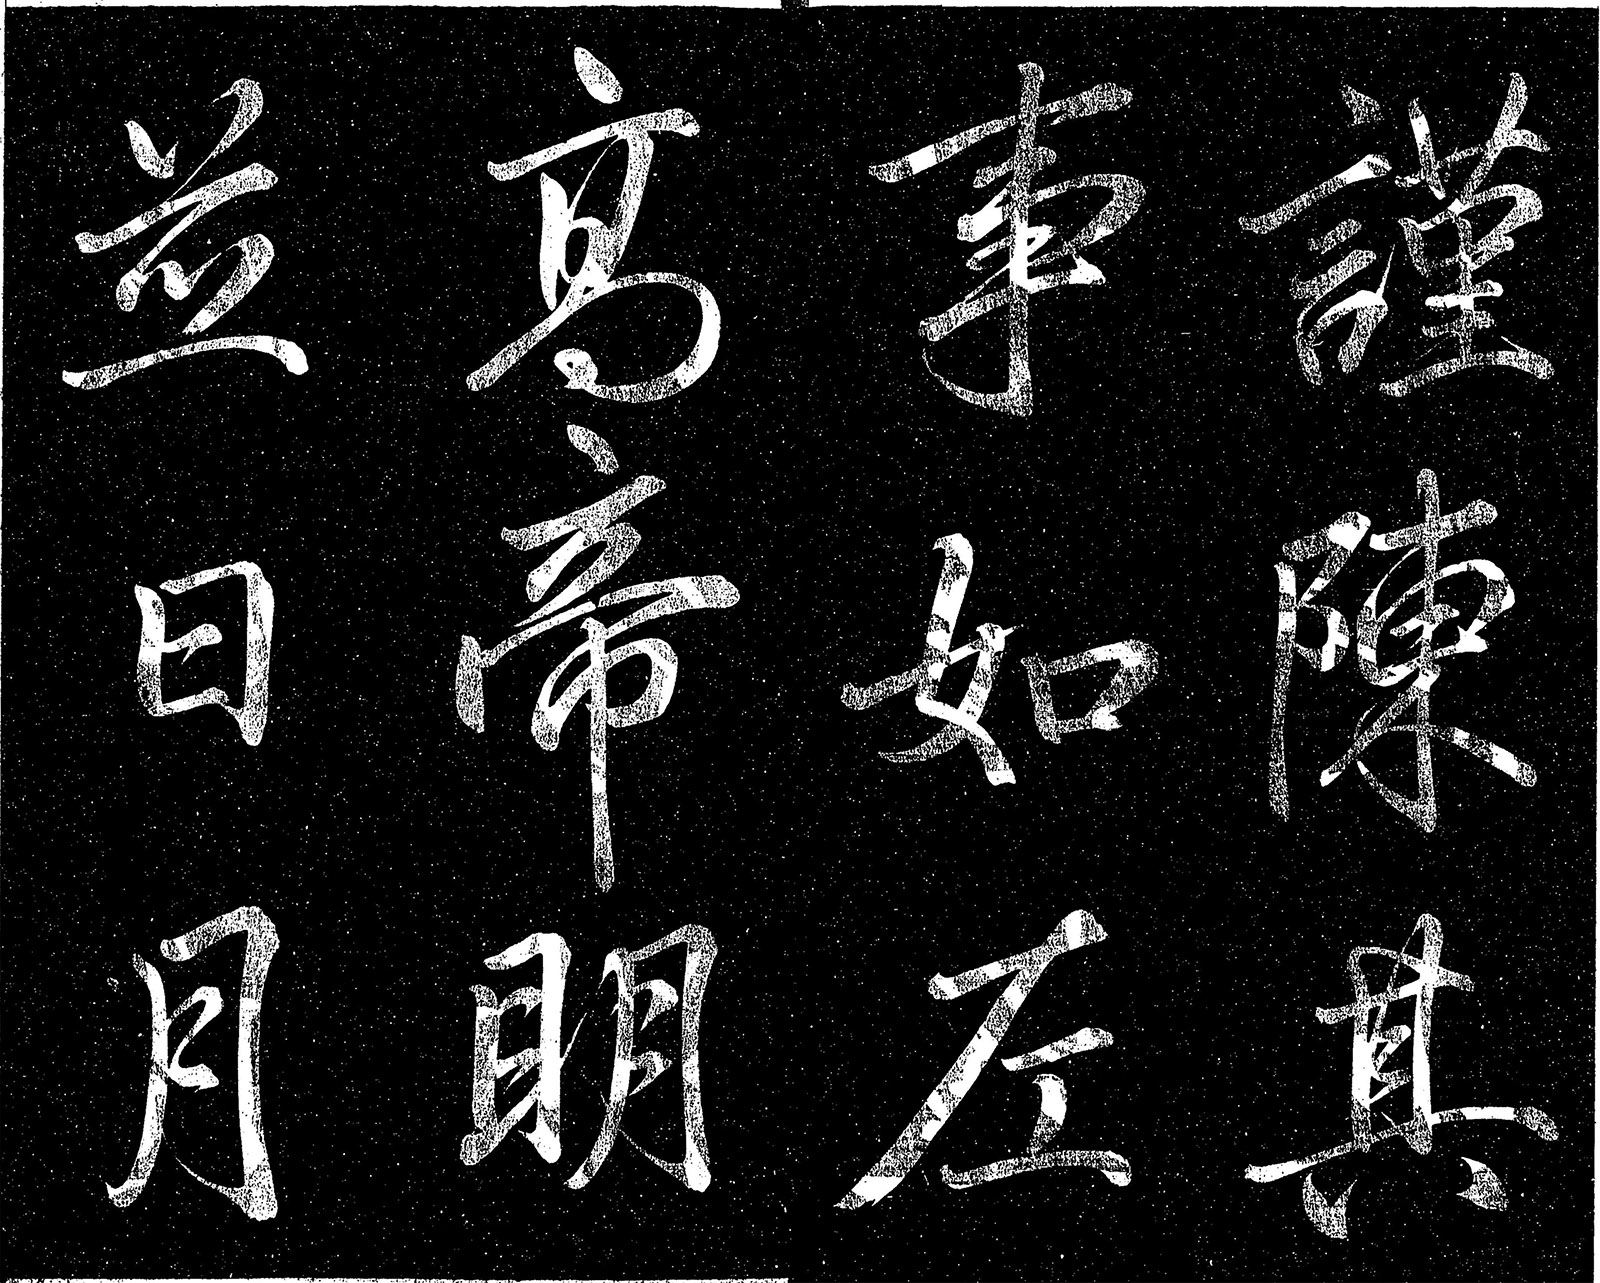 謹陳其
事如左
高帝明
並日月